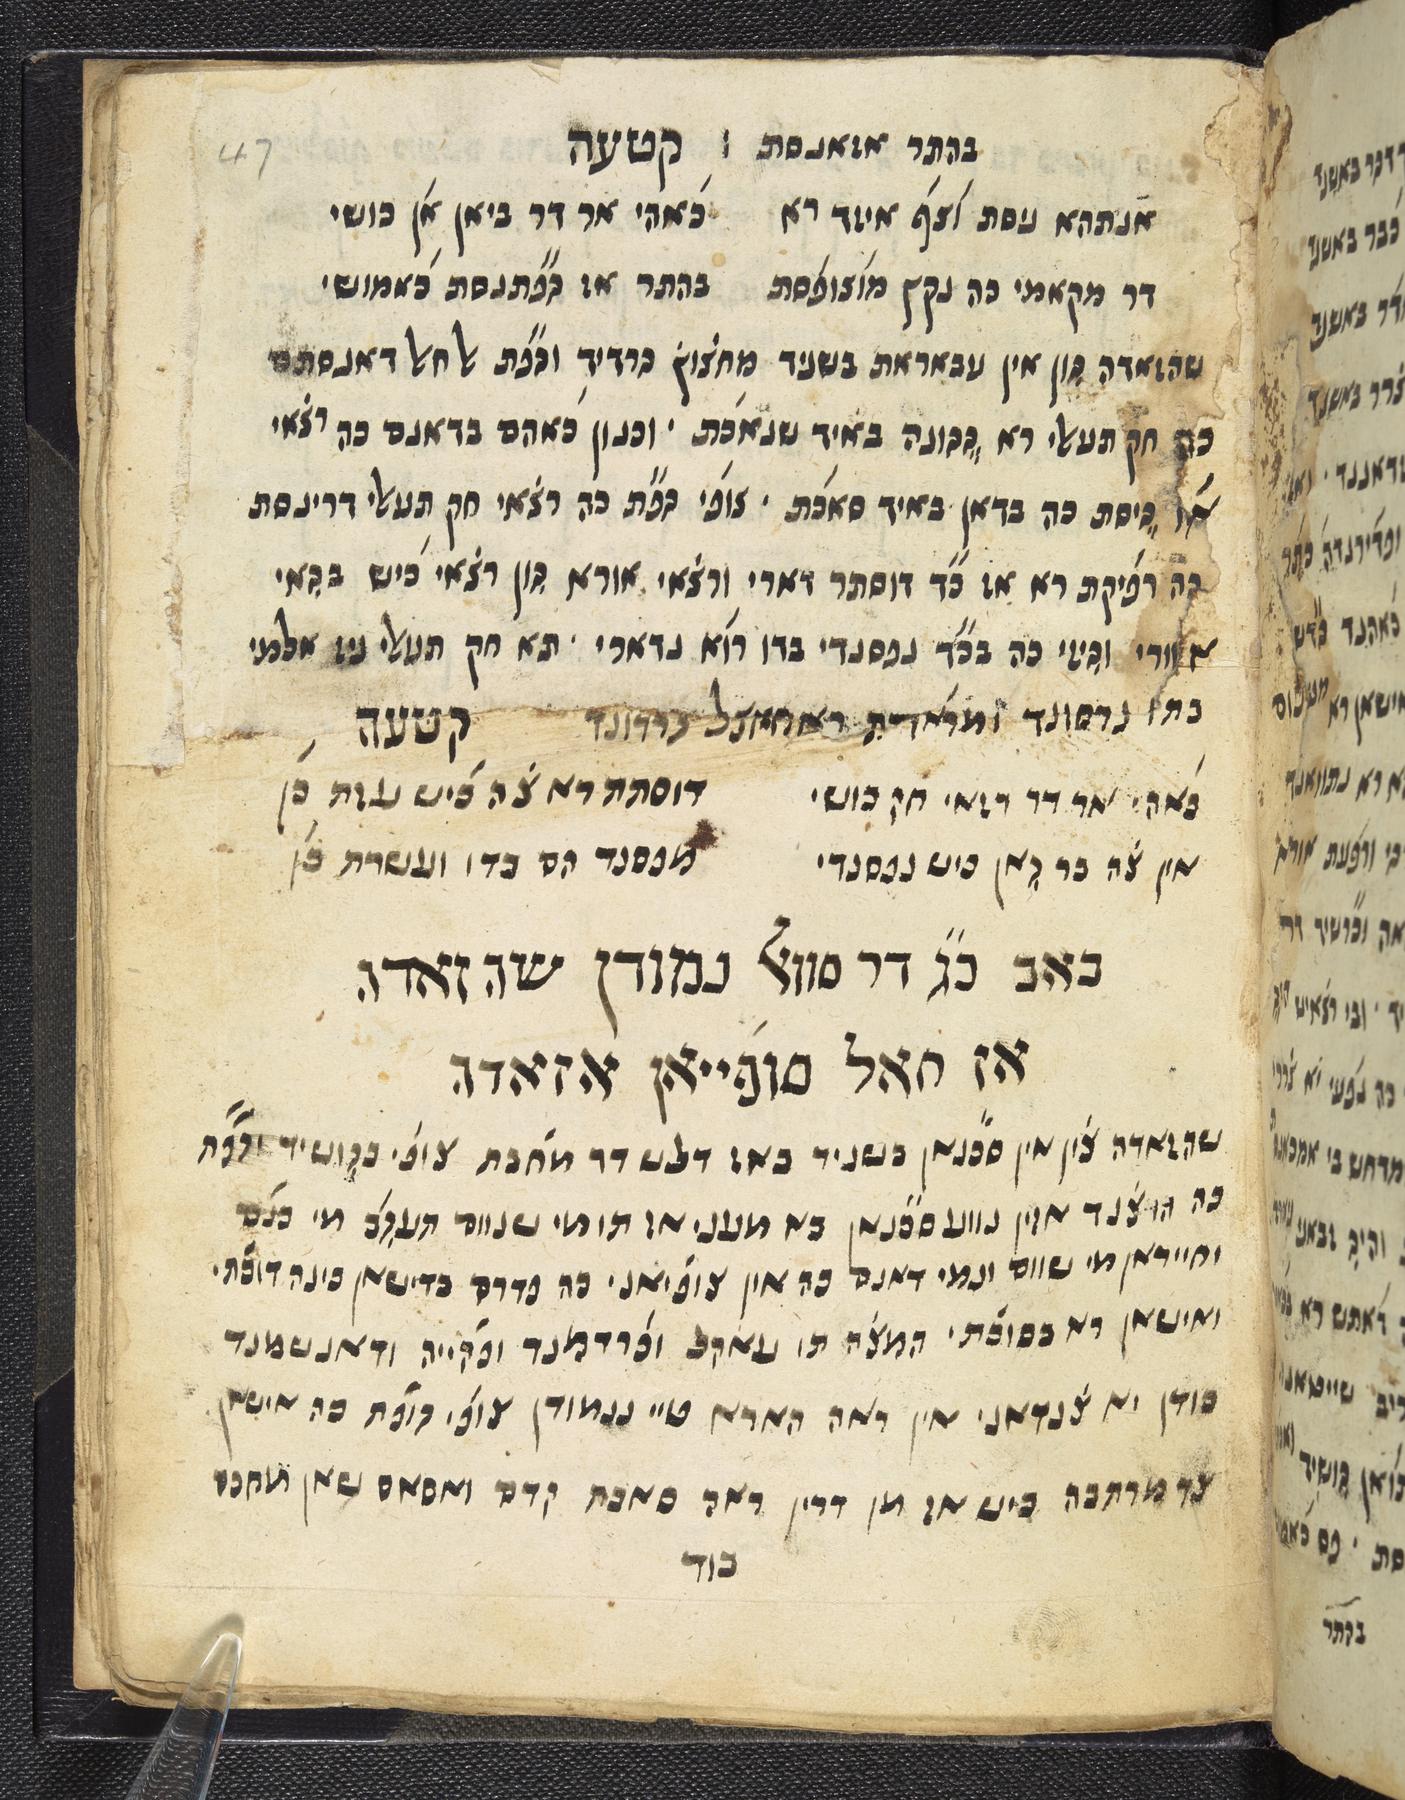 בהתר אזאנסת : קטעה
אנתהא ניסת וצף איזד רא כאהי אר דר ביאן אן כושי
דר מקאמי כה נקץ מוצופסת בהתר אז גפתנסת כאמושי
שהזאדה גון אין עבאראת בשניד מחצוץ גרדיד וגפת
כה חק תעאלי רא גגונה באיד שנאכת · וכנון כאהם בדאנם כה רצאי
או גיסת כה בדאן באיד סאכת · צופי גפת כה רצאי חק תעאלי דרינסת
כה רפיקת רא אז כד דוסתר דארי ורצאי אורא גון רצאי כיש בגאי
אוורי וגיזי כה בכד נפסנדי בדו רוא נדארי · תא חק תעאלי ניז
בתו נרסונד קטעה
כאהי אר דר רזאי חק כושי דוסתת רא צה כיש עזת כן
אין צה בר גאן כיש נפסנדי מפסנד הם בדו ועשרת כן
באב כג דר סוואל נמודן שהזאדה
אז חאל סופייאן אזאדה
שהזאדה צון אין סכנאן בשניד באז דלש דר מחבת צופי בגושיד וגפת
כה הרצנד אזין נווע סכנאן בא מעני אז תו מי שנוום תעגב מי כנם
וחייראן מי שוום ונמי דאנם כה אין צופיאני כה פדרם בדישאן כינה דוכתי
ואישאן רא בסוכתי המצה תו עאקל וכרדמנד ופקייה ודאנשמנד
בודן יא צנדאני אין ראה הארא טיי ננמודן צופי גופת כה אישאן
צד מרתבה ביש אז מן דרין ראה סאבת קדם ואסאס שאן מחכם
בוד